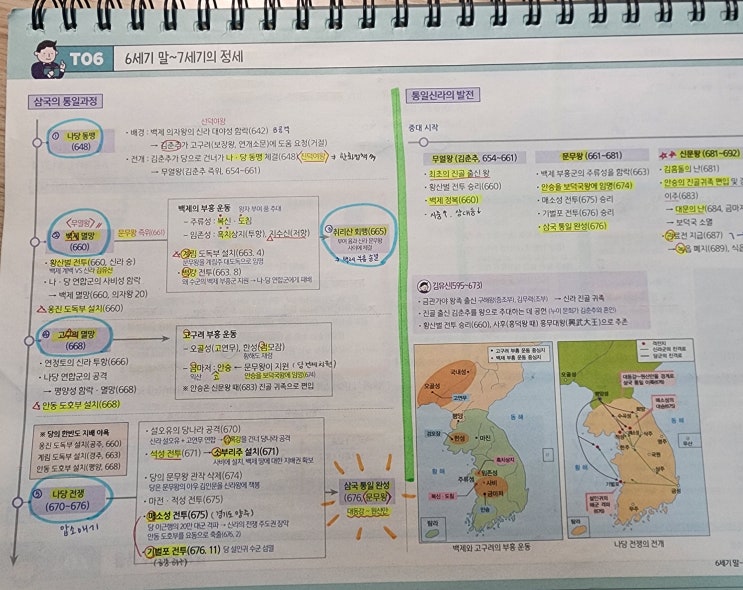 T06 6세기 말~7세기의 정세
삼국의 통일과정
① 나당 동맹
(648)
신덕여왕
• 배경 : 백제 의자왕의 신라 대야성 함락(642)
→ 김춘추가 고구려(보장왕, 연개소문)에 도움 요청(거절)
• 전개 : 김춘추가 당으로 건너가 나·당 동맹 체결(648) 진덕여왕
→ 무열왕(김춘추 즉위, 654~661)
<무열왕>
② 백제 멸망
(660)
문무왕 즉위(661)
• 황산벌 전투(660, 신라 승)
백제 계백 VS 신라 김유신
• 나·당 연합군의 사비성 함락
→ 백제 멸망(660, 의자왕 20)
웅진 도독부 설치(660)
백제의 부흥 운동 왕자 부여 풍 추대
- 주류성 : 복신·도침
- 임존성 : 흑치상지(투항) 지수신(저항)
계림 도독부 설치(663. 4)
문무왕을 계림주 대도독으로 임명
백강 전투(663. 8)
왜 수군의 백제 부흥군 지원 → 나·당 연합군에게 패배
③ 취리산 회맹(665)
부여 융과 신라 문무왕
사이에 체결
④ 고구려 멸망
(668)
• 연정토의 신라 투항(666)
• 나당 연합군의 공격
→ 평양성 함락·멸망(668)
안동 도호부 설치(668)
고구려 부흥 운동
- 오골성(고연무), 한성(검모잠)
황해도 재령
- 금마저 : 안승 ← 문무왕이 지원
익산 안승을 보덕국왕에 임명(674)
※ 안승은 신문왕 때(683) 진골 귀족으로 편입
※ 당의 한반도 지배 야욕
웅진 도독부 설치(공주, 660)
계림 도독부 설치(경주, 663)
안동 도호부 설치(평양, 668)
⑤ 나당 전쟁
(670~676)
• 설오유의 당나라 공격(670)
신라 설오유 + 고구려 고연무 연합 → 압록강을 건너 당나라 공격
• 석성 전투(671) → 소부리주 설치(671)
사비에 설치, 백제 땅에 대한 지배권 확보
• 당의 문무왕 관작 삭제(674)
당은 문무왕의 아우 김인문을 신라왕에 책봉
• 마전·적성 전투(675)
• 매소성 전투(675) (경기도 양주)
당 이근행의 20만 대군 격파 → 신라의 전쟁 주도권 장악
안동 도호부를 요동으로 축출(676. 2)
• 기벌포 전투(676. 11) 당 설인귀 수군 섬멸
삼국 통일 완성
(676, 문무왕)
대동강~원산만
통일신라의 발전
중대 시작
무열왕 (김춘추, 654~661)
최초의 진골 출신 왕
황산벌 전투 승리(660)
백제 정복(660)
문무왕(661~681)
• 백제 부흥군의 주류성을 함락(663)
• 안승을 보덕국왕에 임명(674)
• 매소성 전투(675) 승리
• 기벌포 전투(676) 승리
• 삼국 통일 완성(676)
신문왕(681~692)
• 김흠돌의 난(681)
• 안승의 진골귀족 편입 및
이주(683)
→ 대문의 난(684, 금마
→ 보덕국 소멸
• 관료전 지급(687)
녹읍 폐지(689), 식읍
김유신(595~673)
• 금관가야 왕족 출신 구해왕(증조부), 김무력(조부) → 신라 진골 귀족
• 진골 출신 김춘추를 왕으로 추대하는 데 공헌 (누이 문희가 김춘추와 혼인)
• 황산벌 전투 승리(660), 사후(흥덕왕 때) 흥무대왕(興武大王)으로 추존
고구려 부흥 운동 중심지
백제 부흥 운동 중심지
국내성
오골성
고연무
평양
검모잠
한성
마진
동 해
황 해
흑치상지
임존성
주류성
사비
복신·도침
금마저
안승
탐라
백제와 고구려의 부흥 운동
격전지
신라군의 진격로
당군의 진격로
대동강~원산만을 경계로
삼국 통일 이룩(676)
매소성의
대승(675)
평양성
동 해
우산
황 해
기벌포
금성
설인귀의
해군 격파
탐라
나당 전쟁의 전개
6세기 말~